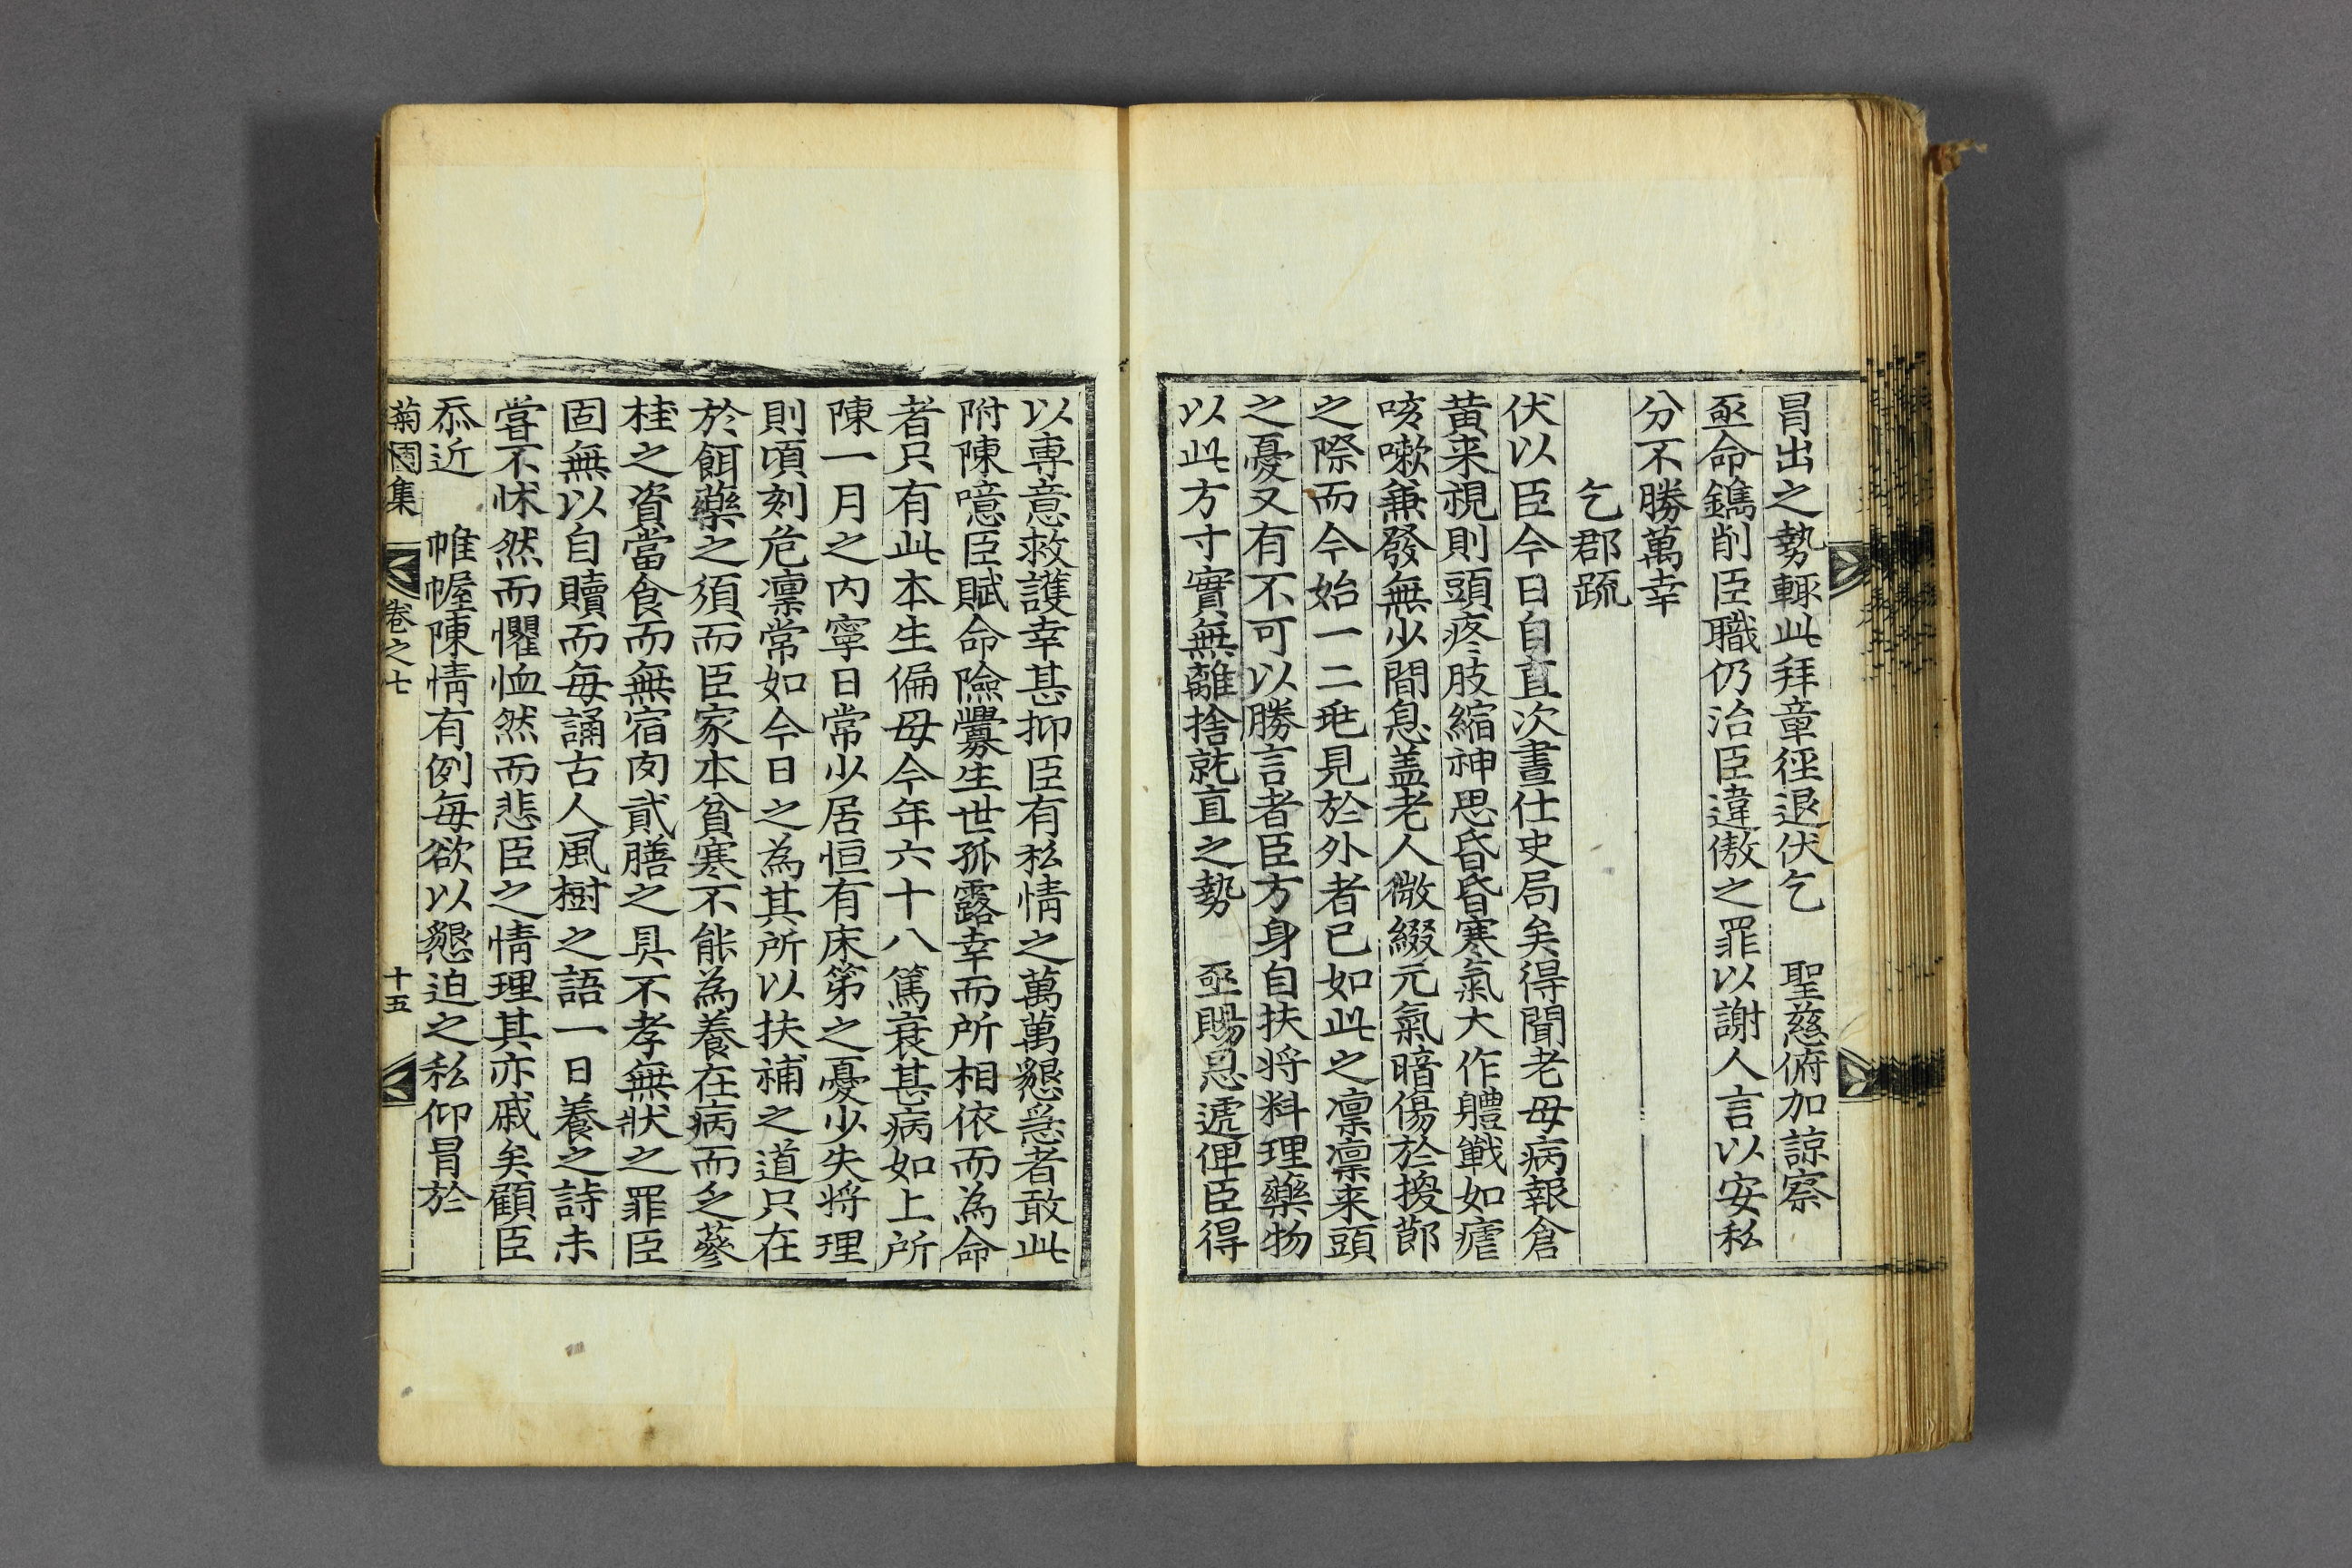 冐出之勢輒此拜章徑退伏乞　聖慈俯加諒察
亟命鐫削臣職仍治臣違傲之罪以謝人言以安私
分不勝萬幸
乞郡疏
伏以臣今日自直次晝仕史局矣得聞老母病報倉
黃来視則頭疼肢縮神思昏昏寒氣大作軆戰如瘧
咳嗽兼發無少間息盖老人微綴元氣暗傷於換節
之際而今始一二症見於外者已如此之凛凛来頭
之憂又有不可以勝言者臣方身自扶将料理藥物
以此方寸實無離捨就直之勢　亟賜恩遞俾臣得
以專意救護幸甚抑臣有私情之萬萬懇急者敢此
附陳噫臣賦命險釁生世孤露幸而所相依而為命
者只有此本生偏母今年六十八篤衰甚病如上所
陳一月之内寧日常少居恒有床第之憂少失将理
則頃刻危凛常如今日之為其所以扶補之道只在
於餌藥之須而臣家本貧寒不能為養在病而乏蔘
桂之資當食而無宿肉貳膳之具不孝無狀之罪臣
固無以自贖而每誦古人風樹之語一日養之詩未
嘗不怵然而懼恤然而悲臣之情理其亦慼矣顧臣
忝近　帷幄陳情有例每欲以懇迫之私仰冐於
菊圃集　卷之七　十五